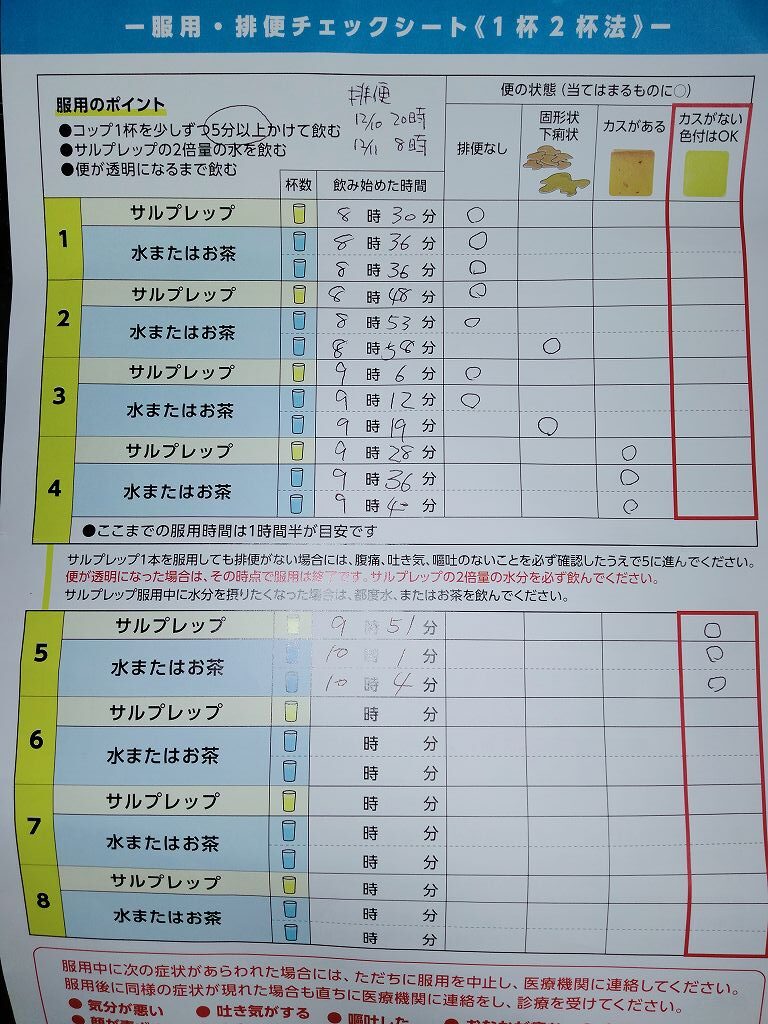 ー服用・排便チェックシート《1杯2杯法》ー
服用のポイント
●コップ1杯を少しずつ5分以上かけて飲む
●サルプレップの2倍量の水を飲む
●便が透明になるまで飲む
排便
12/10 20時
12/11 8時
便の状態（当てはまるものに○）
杯数 飲み始めた時間 排便なし 固形状 下痢状 カスがある カスがない 色付はOK
1 サルプレップ 8時30分 ○
水またはお茶 8時36分 ○
8時36分 ○
2 サルプレップ 8時48分 ○
水またはお茶 8時53分 ○
8時58分 ○
3 サルプレップ 9時6分 ○
水またはお茶 9時12分 ○
9時19分 ○
4 サルプレップ 9時28分 ○
水またはお茶 9時36分 ○
9時40分 ○
●ここまでの服用時間は1時間半が目安です
サルプレップ1本を服用しても排便がない場合には、腹痛、吐き気、嘔吐のないことを必ず確認したうえで5に進んでください。
便が透明になった場合は、その時点で服用は終了です。サルプレップの2倍量の水分を必ず飲んでください。
サルプレップ服用中に水分を摂りたくなった場合は、都度水、またはお茶を飲んでください。
5 サルプレップ 9時51分 ○
水またはお茶 10時1分 ○
10時4分 ○
6 サルプレップ 時 分
水またはお茶 時 分
時 分
7 サルプレップ 時 分
水またはお茶 時 分
時 分
8 サルプレップ 時 分
水またはお茶 時 分
時 分
服用中に次の症状があらわれた場合には、ただちに服用を中止し、医療機関に連絡してください。
服用後に同様の症状が現れた場合も直ちに医療機関に連絡をし、診療を受けてください。
●気分が悪い ●吐き気がする ●嘔吐した